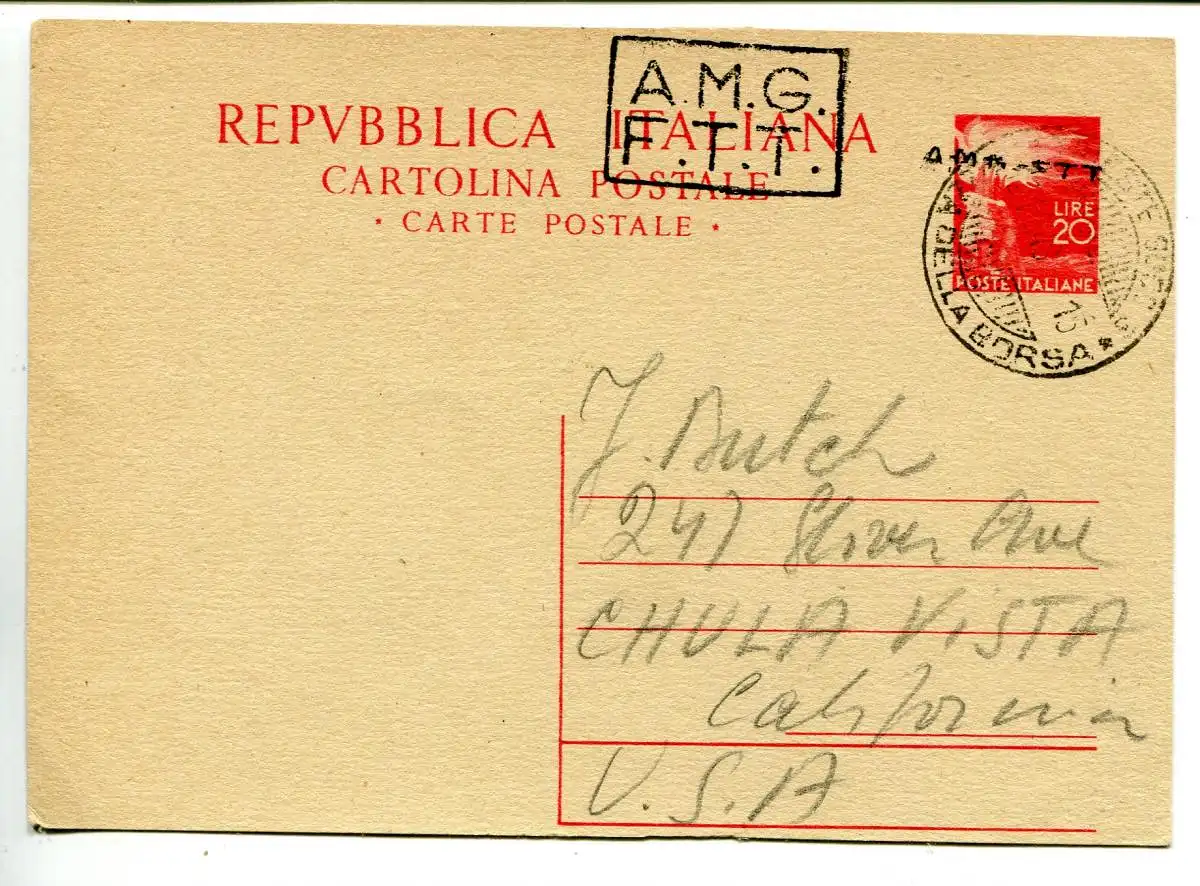 A.M.G.
F.T.T.
REPVBBLICA ITALIANA
CARTOLINA POSTALE
* CARTE POSTALE *
AMG-FTT
LIRE
20
POSTE ITALIANE
DELLA BORSA *
15
J. Butch
247 Ave
CHULA VISTA
California
U.S.A